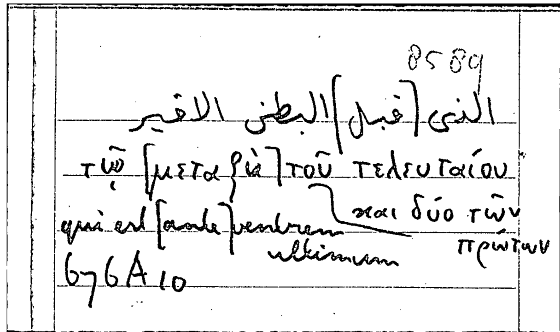 8589
الذى [قبل] البطن الاخير
τῷ [μεταξὺ] τοῦ τελευταίου
καὶ δύο τῶν πρώτων
qui est [ante] ventrem ultimum
676A10